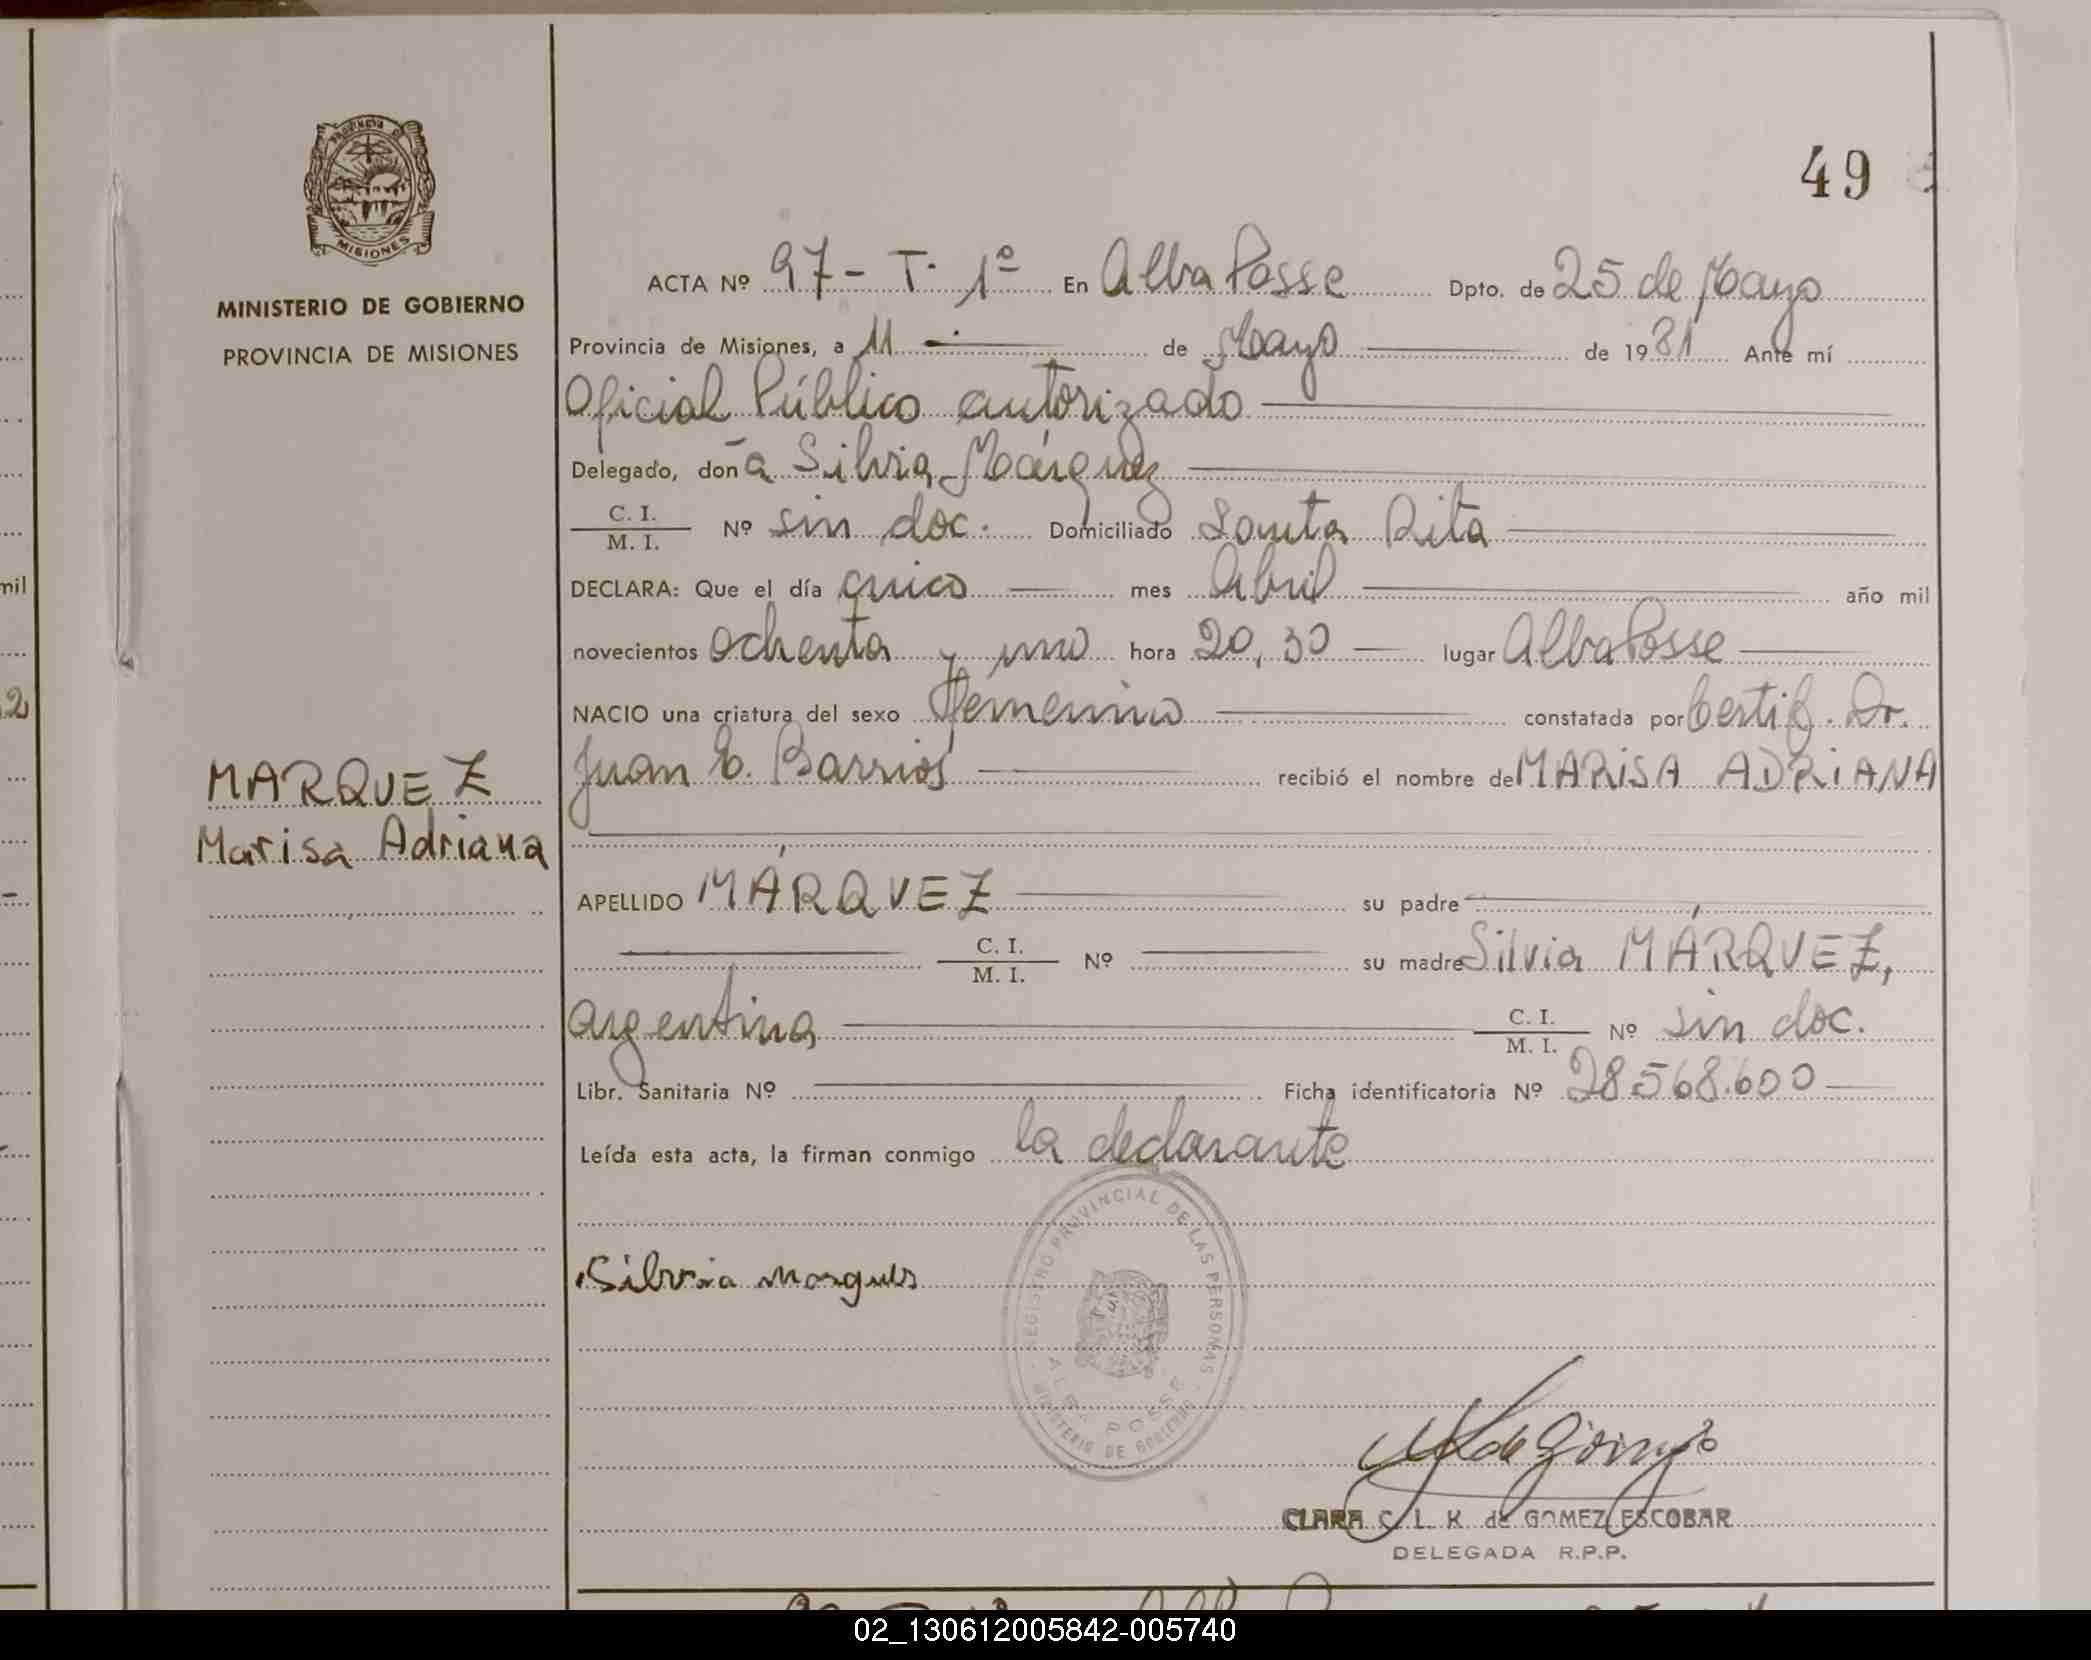 49
PROVINCIA DE
MISIONES
MINISTERIO DE GOBIERNO
PROVINCIA DE MISIONES
ACTA Nº 97 - T. 1º En Alba Posse Dpto. de 25 de Mayo
Provincia de Misiones, a 11 de Mayo de 1981 Ante mí
Oficial Público autorizado
Delegado, doña Silvia Márquez
C. I.
M. I. Nº sin doc. Domiciliado Santa Rita
DECLARA: Que el día mes Abril año mil
mil
novecientos ochenta y uno hora 20,30 lugar Alba Posse
NACIO una criatura del sexo femenino constatada por Certif. Dr.
2
Juan C. Barrios recibió el nombre de MARISA ADRIANA
MARQUEZ
Marisa Adriana
APELLIDO MÁRQUEZ su padre
C. I.
M. I. Nº su madre Silvia MÁRQUEZ,
argentina C. I.
M. I. Nº sin doc.
Libr. Sanitaria Nº Ficha identificatoria Nº 28.568.600
Leída esta acta, la firman conmigo la declarante
REGISTRO PROVINCIAL DE LAS PERSONAS
ALBA POSSE
MINISTERIO DE GOBIERNO
Silvia
CLARA C. L. K. de GOMEZ ESCOBAR
DELEGADA R.P.P.
02_130612005842-005740